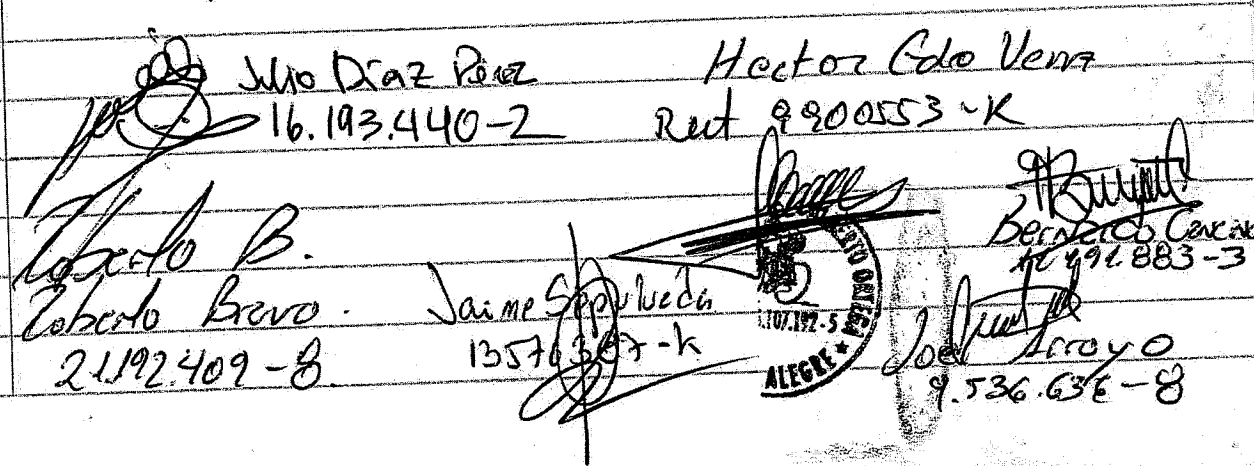 Julio Díaz Pérez
16.193.440-2
Hector Edo Vera
Rut 9900553-K
Roberto B.
Roberto Bravo.
21.192.409-8
Jaime Sepulveda
ERTO ORTEGA
.107.192-5
ALEGRE ★
Bernardo
883-3
Joel Arroyo
9.536.636-8